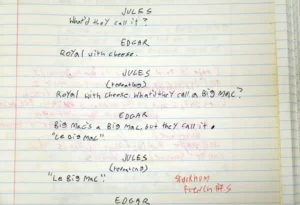 JULES
What'd they call it?
EDGAR
Royal with cheese.
JULES
(repeating)
Royal with cheese. What'd they call a Big Mac?
EDGAR
Big Mac's a Big Mac, but they call it
"Le Big Mac"
JULES
(repeating)
"Le Big Mac."
EDGAR